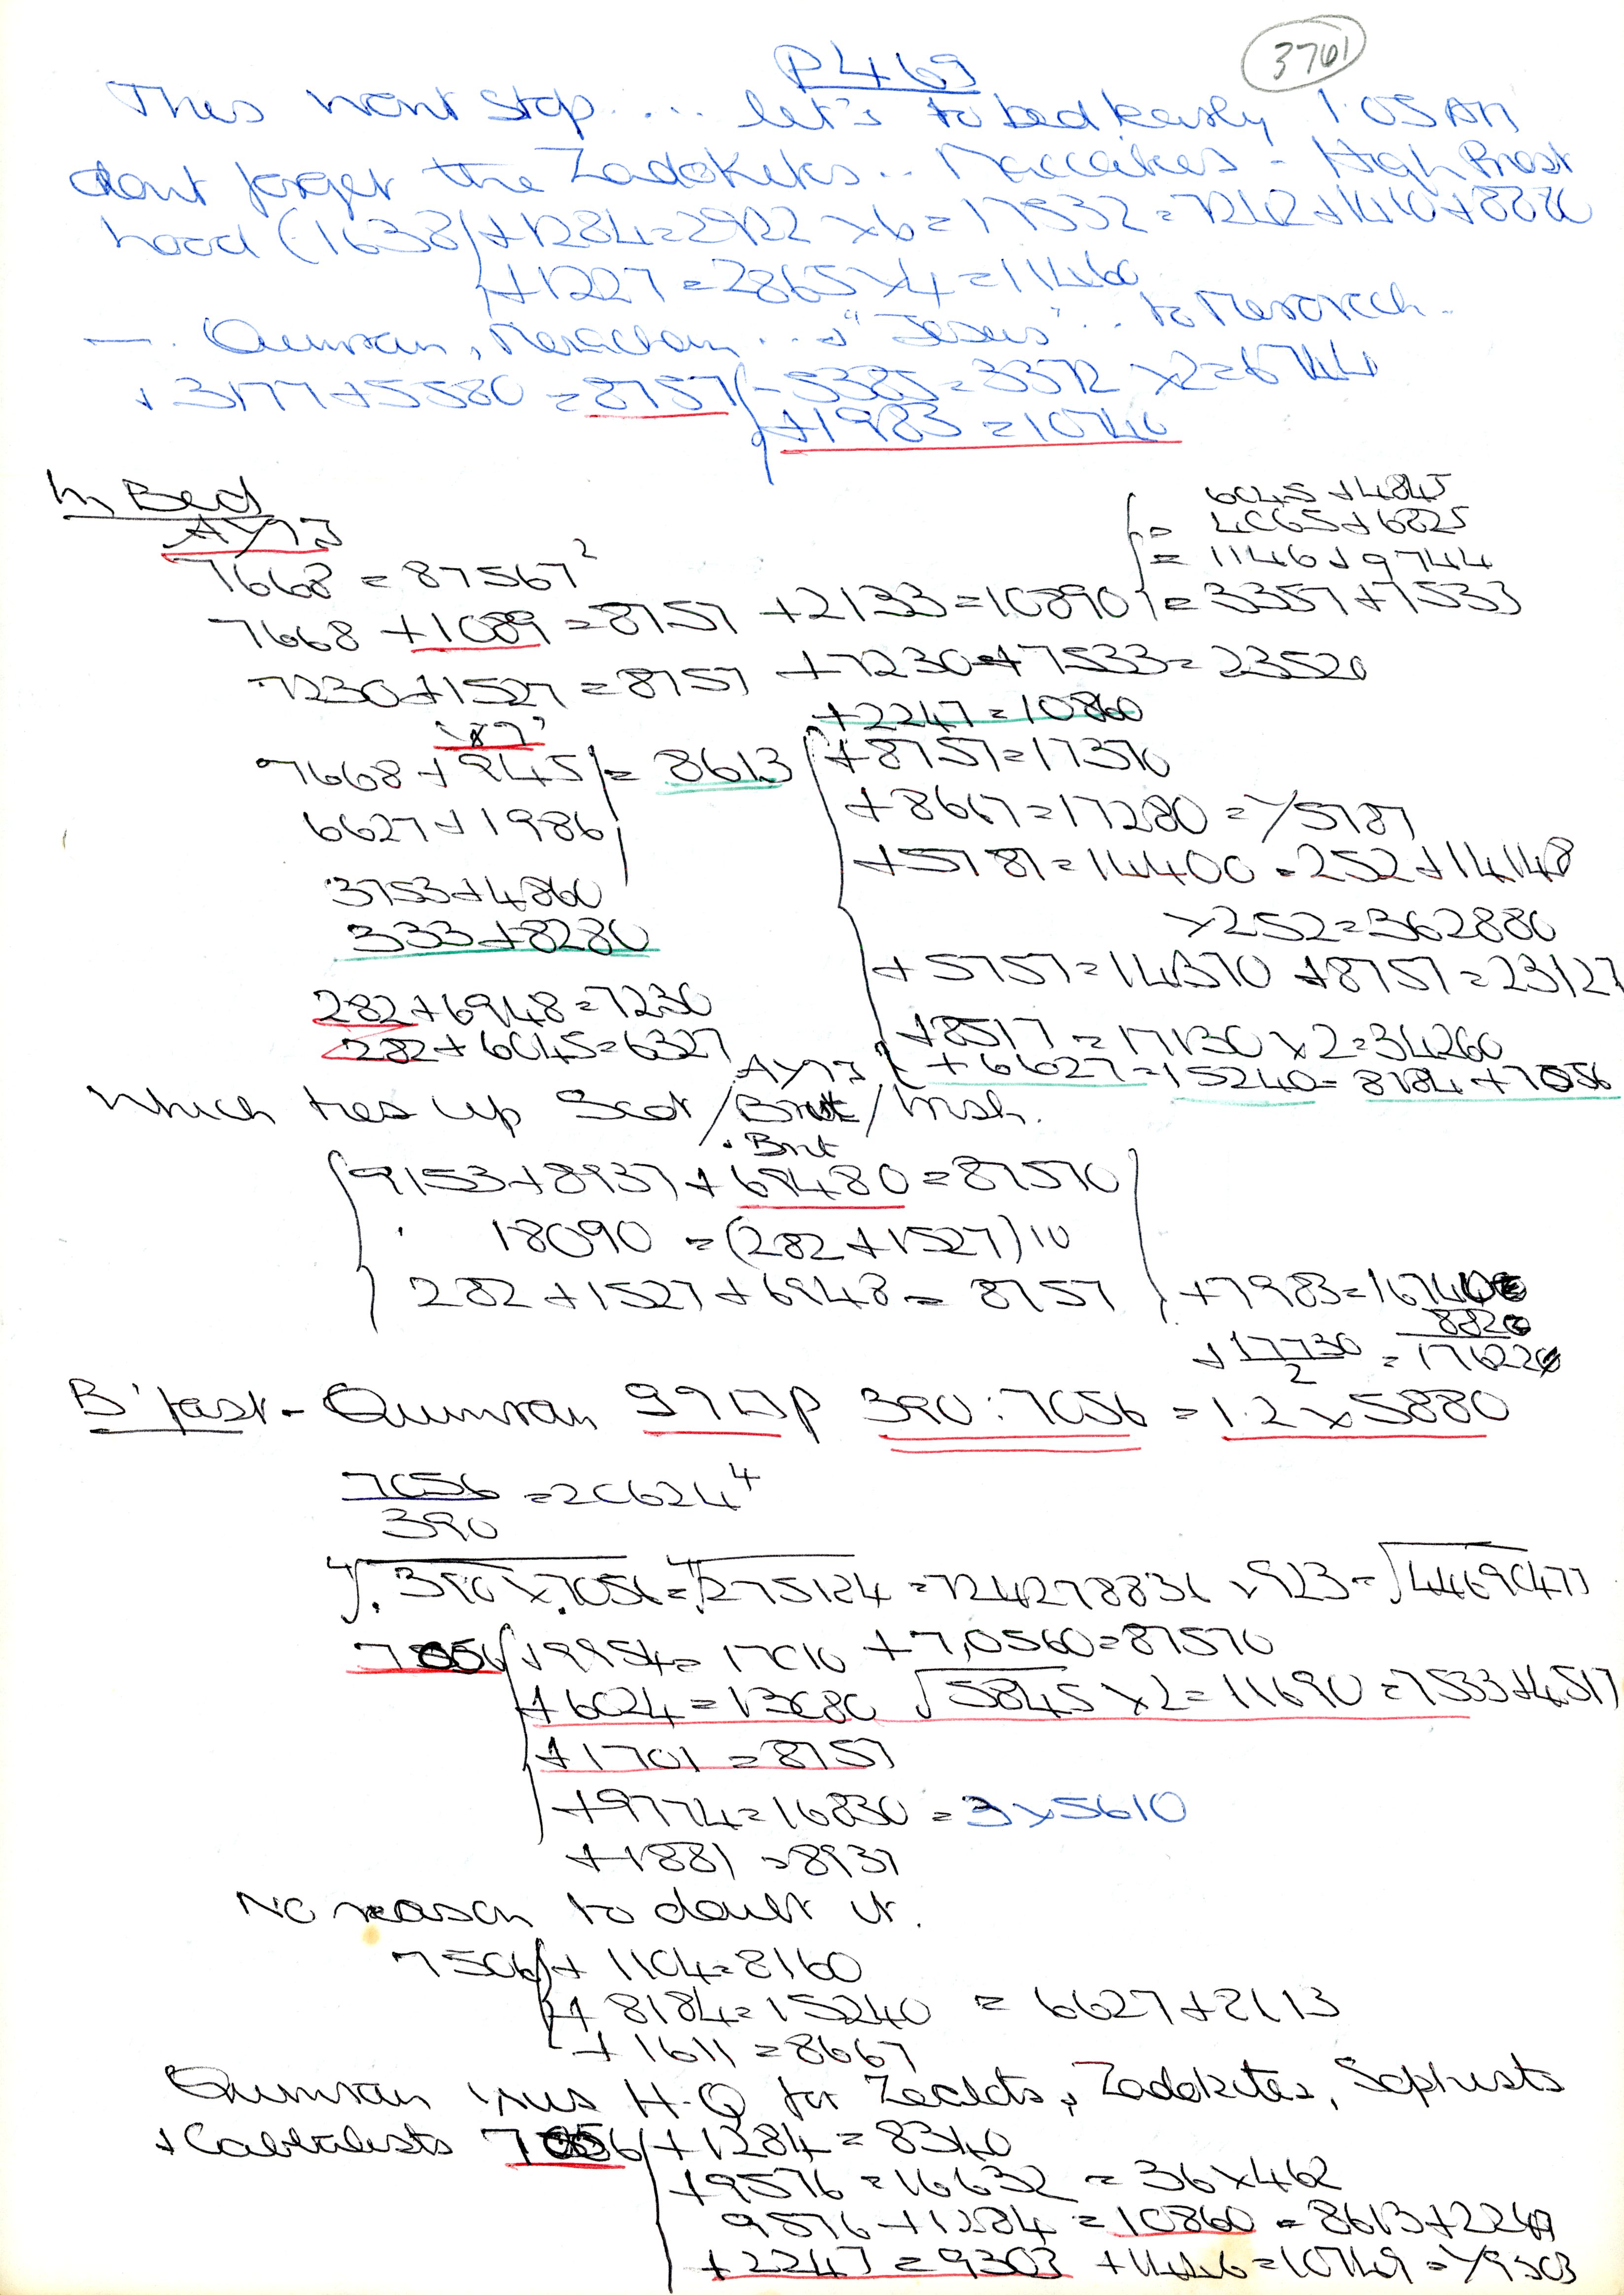 P469
3701
This wont stop.... let's to bed early 1.05AM
dont forget the Zadokites.. Maccabees - High Priest
hood (1638) +1284=2922 x6=17532=7242+1410+8880
+1227=2865x4=11460
Qumran, Menachem... "Jesus"... to Merovech.
+3177+5580=8757 -5385=3372 x2=6744
+1983=10740
In Bed
6045+4845
= 4065+6825
= 1146+9744
7668=87567²
7668+1089=8757 +2133=10890 =3357+7533
7230+1527=8757 +7230+7533=23520
+2247=10860
7668+945 = 8613 +8757=17370
6627+1986 +8667=17280=/5787
+5787=14400=252+14148
3753+4860 x252=362880
333+8280
+5757=14370 +8757=23127
282+6948=7230
+8517=17130x2=34260
282+6045=6327
+6627=15240=8184+7056
Which ties up Scot/Brit/Irish.
Brit
9153+8937+69480=87570
18090=(282+1527)10
282+1527+6948=8757 +7983=16740
8820
+17730/2=17622
B'fast - Qumran 390:7056=1.2x5880
7056/390=20624⁴
⁴√.390x.7056=⁴√275184=724278836 x923=√44690477
7056 +9954=17010 +7,0560=87570
+6024=13080 √5845x2=11690=7533+4517
+1701=8757
+9774=16830=3x5610
+1881=8937
No reason to doubt it.
7506 +1104=8160
+8184=15240 =6627+8613
+1611=8667
Qumran was H.Q for Zealots, Zadokites, Sophists
+Cabbalists 7056 +1284=8340
+9576=16632=36x462
9576+1284=10860=8613+2247
+2247=9303 +1446=10749=/9303